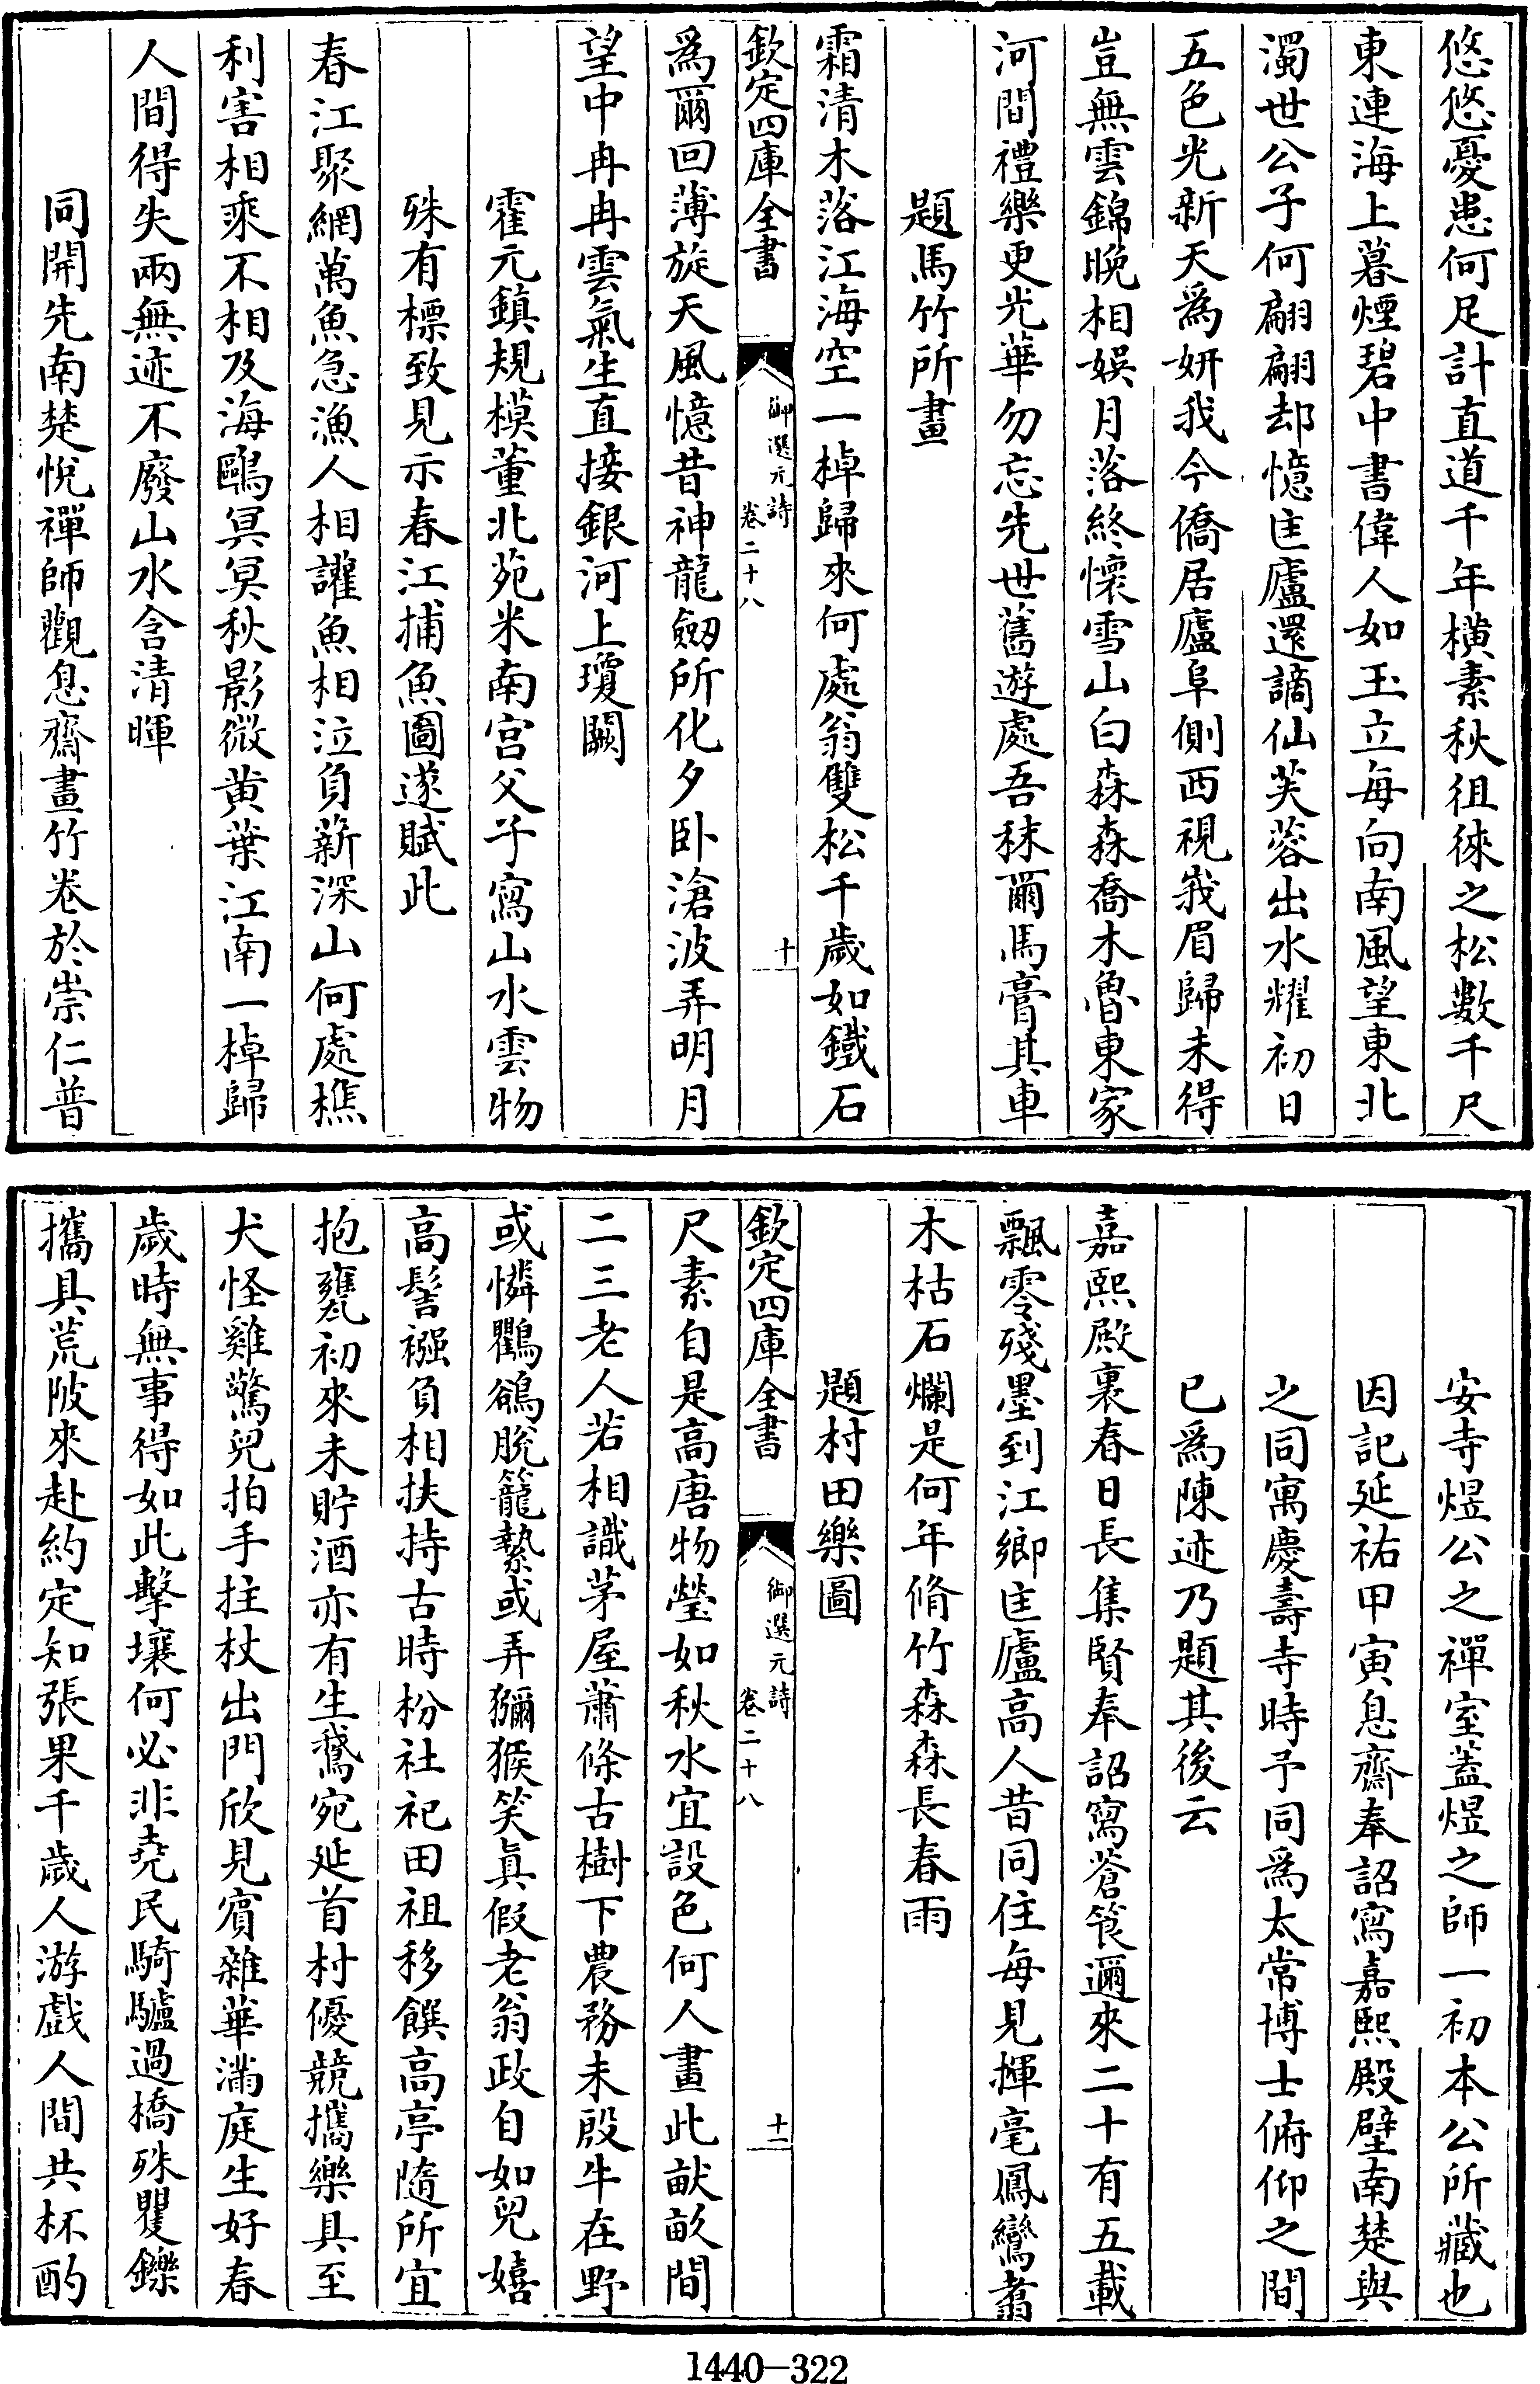 悠悠憂患何足計直道千年横素秋徂徠之松數千尺
東連海上暮煙碧中書偉人如玉立每向南風望東北
濁世公子何翩翩却憶匡廬還謫仙芙蓉出水耀初日
五色光新天爲妍我今僑居廬阜側西視峩眉歸未得
豈無雲錦晚相娛月落終懷雪山白森森喬木魯東家
河間禮樂更光華勿忘先世舊遊處吾秣爾馬膏其車
題馬竹所畫
霜清木落江海空一棹歸來何處翁雙松千歲如鐵石
欽定四庫全書
御選元詩
卷二十八
十
爲爾回薄旋天風憶昔神龍劔所化夕卧滄波弄明月
望中冉冉雲氣生直接銀河上瓊闕
霍元鎮規模董北苑米南宫父子寫山水雲物
殊有標致見示春江捕魚圖遂賦此
春江聚網萬魚急漁人相讙魚相泣負薪深山何處樵
利害相乘不相及海鷗冥冥秋影微黄葉江南一棹歸
人間得失兩無迹不廢山水含清暉
同開先南楚悅禪師觀息齋畫竹卷於崇仁普
安寺煜公之禪室蓋煜之師一初本公所藏也
因記延祐甲寅息齋奉詔寫嘉熙殿壁南楚與
之同寓慶壽寺時予同爲太常博士俯仰之間
已爲陳迹乃題其後云
嘉熙殿裏春日長集賢奉詔寫蒼筤邇來二十有五載
飄零殘墨到江鄉匡廬高人昔同住每見揮毫鳳鸞翥
木枯石爛是何年脩竹森森長春雨
題村田樂圖
欽定四庫全書
御選元詩
卷二十八
十一
尺素自是高唐物瑩如秋水宜設色何人畫此畎畝間
二三老人若相識茅屋蕭條古樹下農務未殷牛在野
或憐鸜鵒脫籠縶或弄獼猴笑眞假老翁政自如兒嬉
高髻襁負相扶持古時枌社祀田祖移饌高亭隨所宜
抱甕初來未貯酒亦有生鵞宛延首村優競攜樂具至
犬怪雞驚兒拍手拄杖出門欣見賔雜華滿庭生好春
歲時無事得如此擊壤何必非堯民騎驢過橋殊矍鑠
攜具荒陂來赴約定知張果千歲人游戲人間共杯酌
1440-322